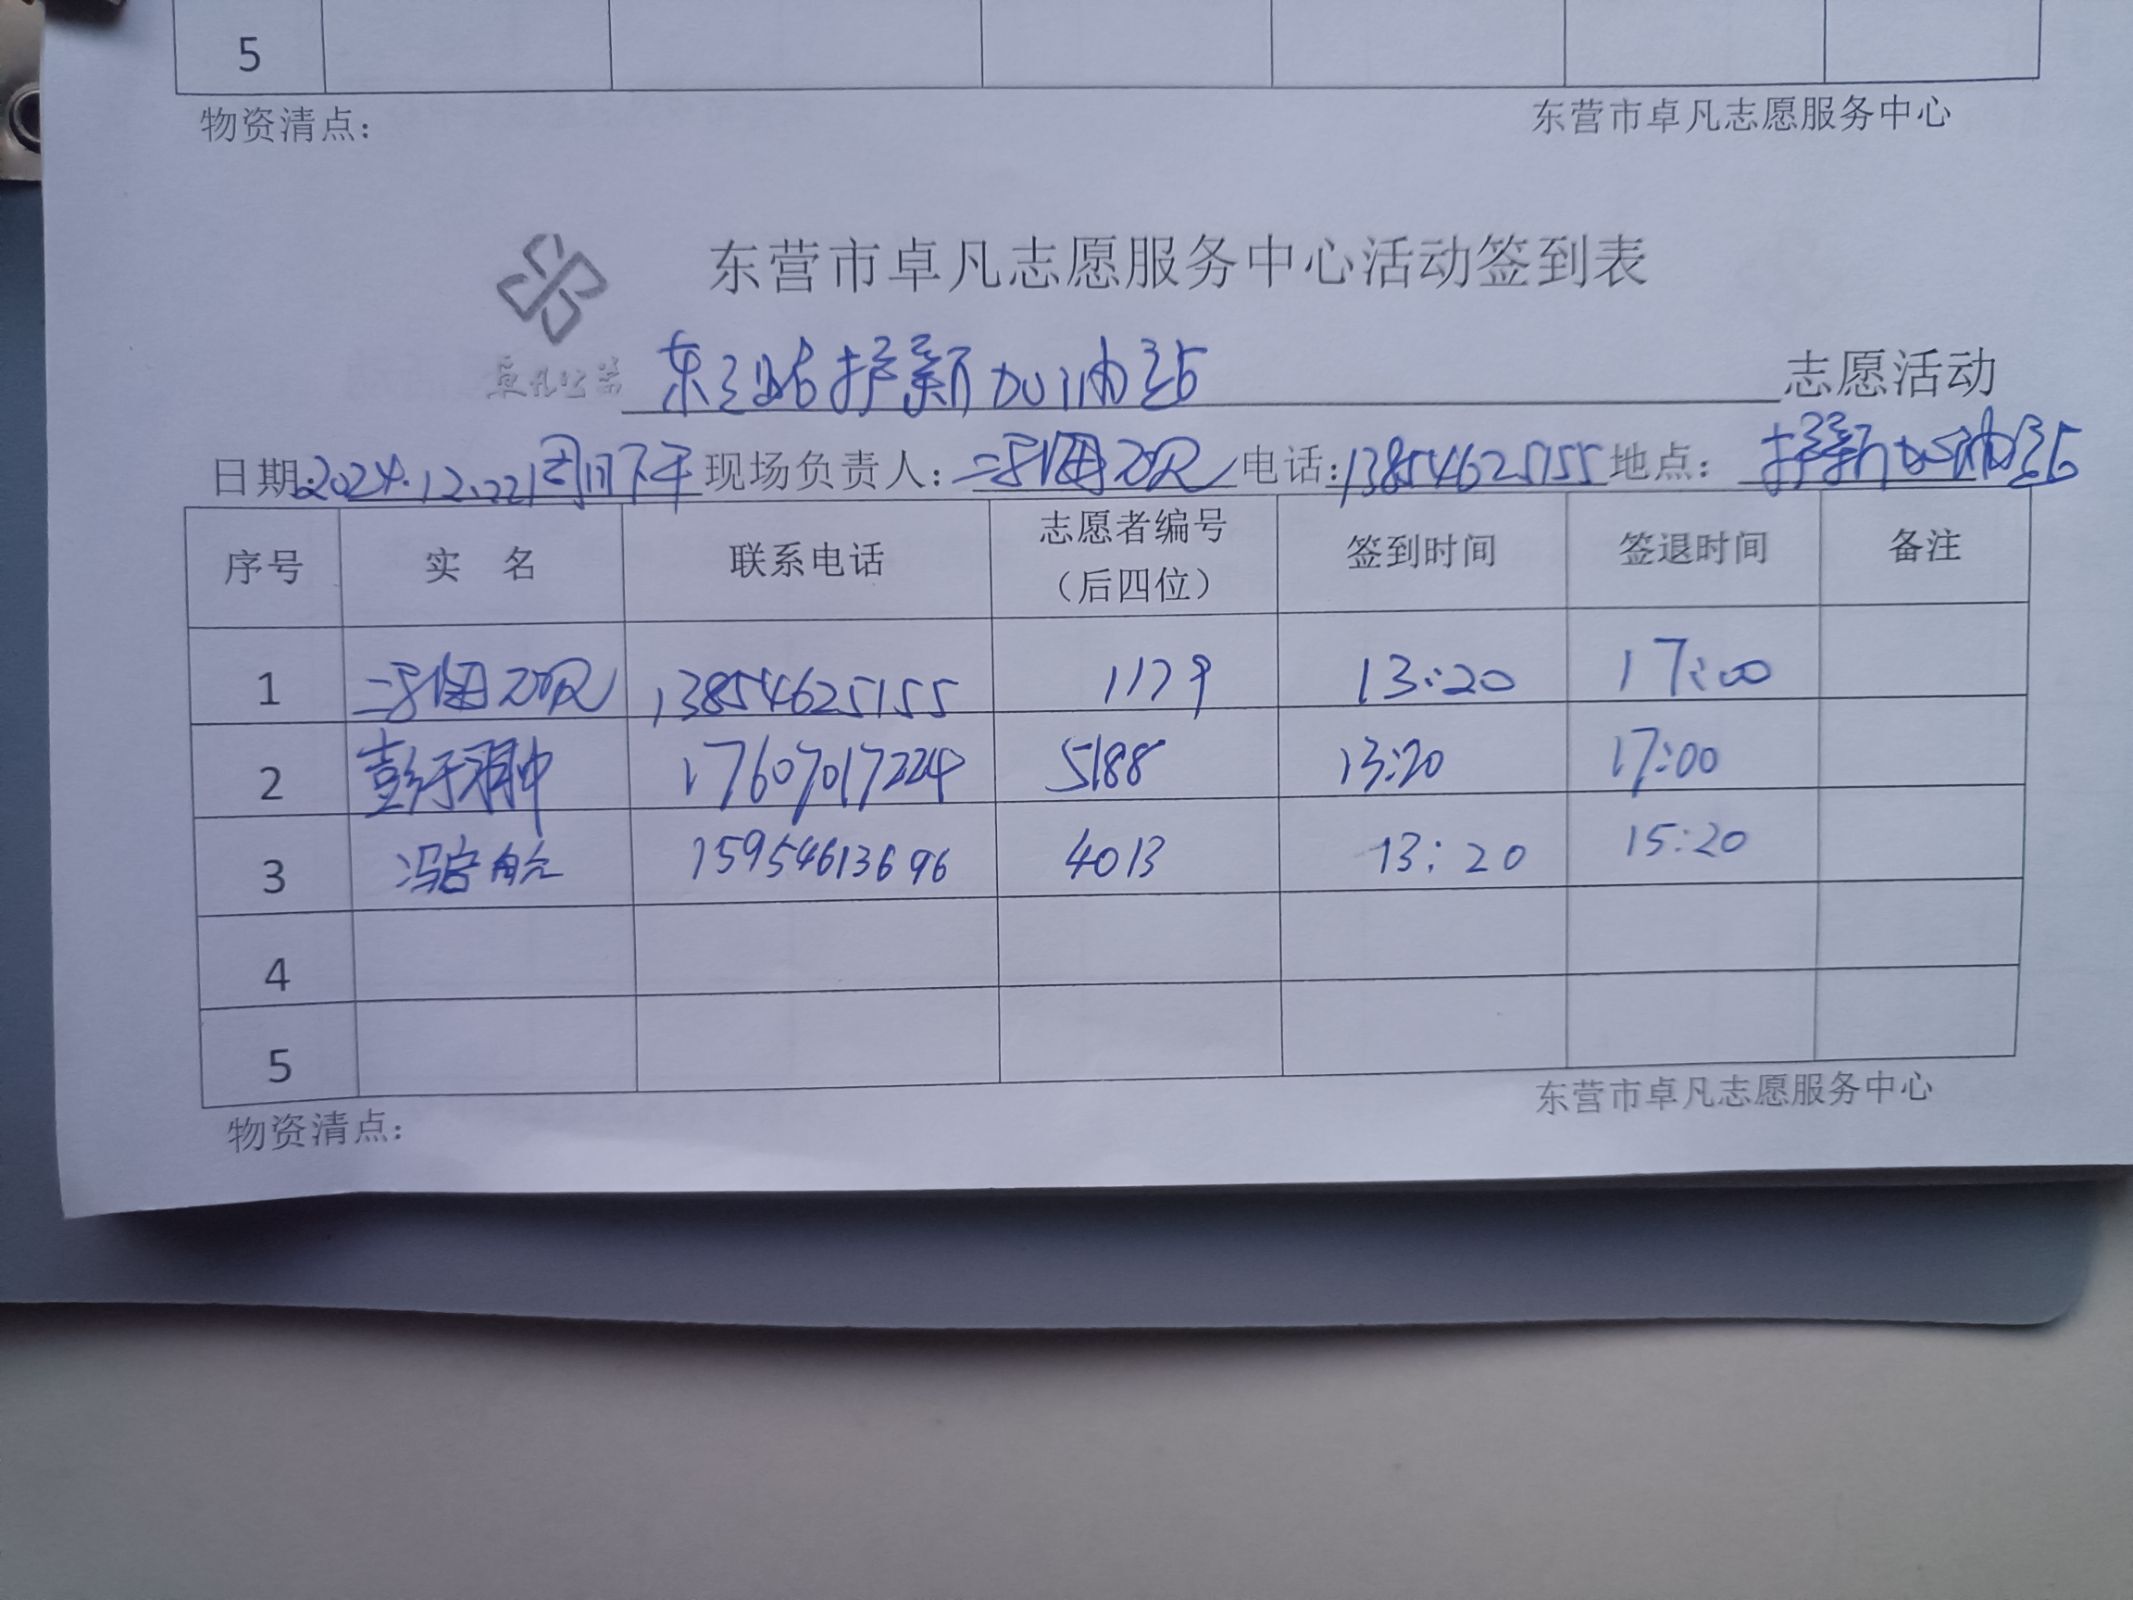 5
物资清点： 东营市卓凡志愿服务中心
东营市卓凡志愿服务中心活动签到表
东三路护新加油站 志愿活动
日期：2024.12.22 下午 现场负责人： 电话：13854625155 地点：护新加油站
序号 实 名 联系电话 志愿者编号（后四位） 签到时间 签退时间 备注
1 13854625155 1179 13:20 17:00
2 17607017224 5188 13:20 17:00
3 冯启航 15954613696 4013 13:20 15:20
4
5
物资清点： 东营市卓凡志愿服务中心